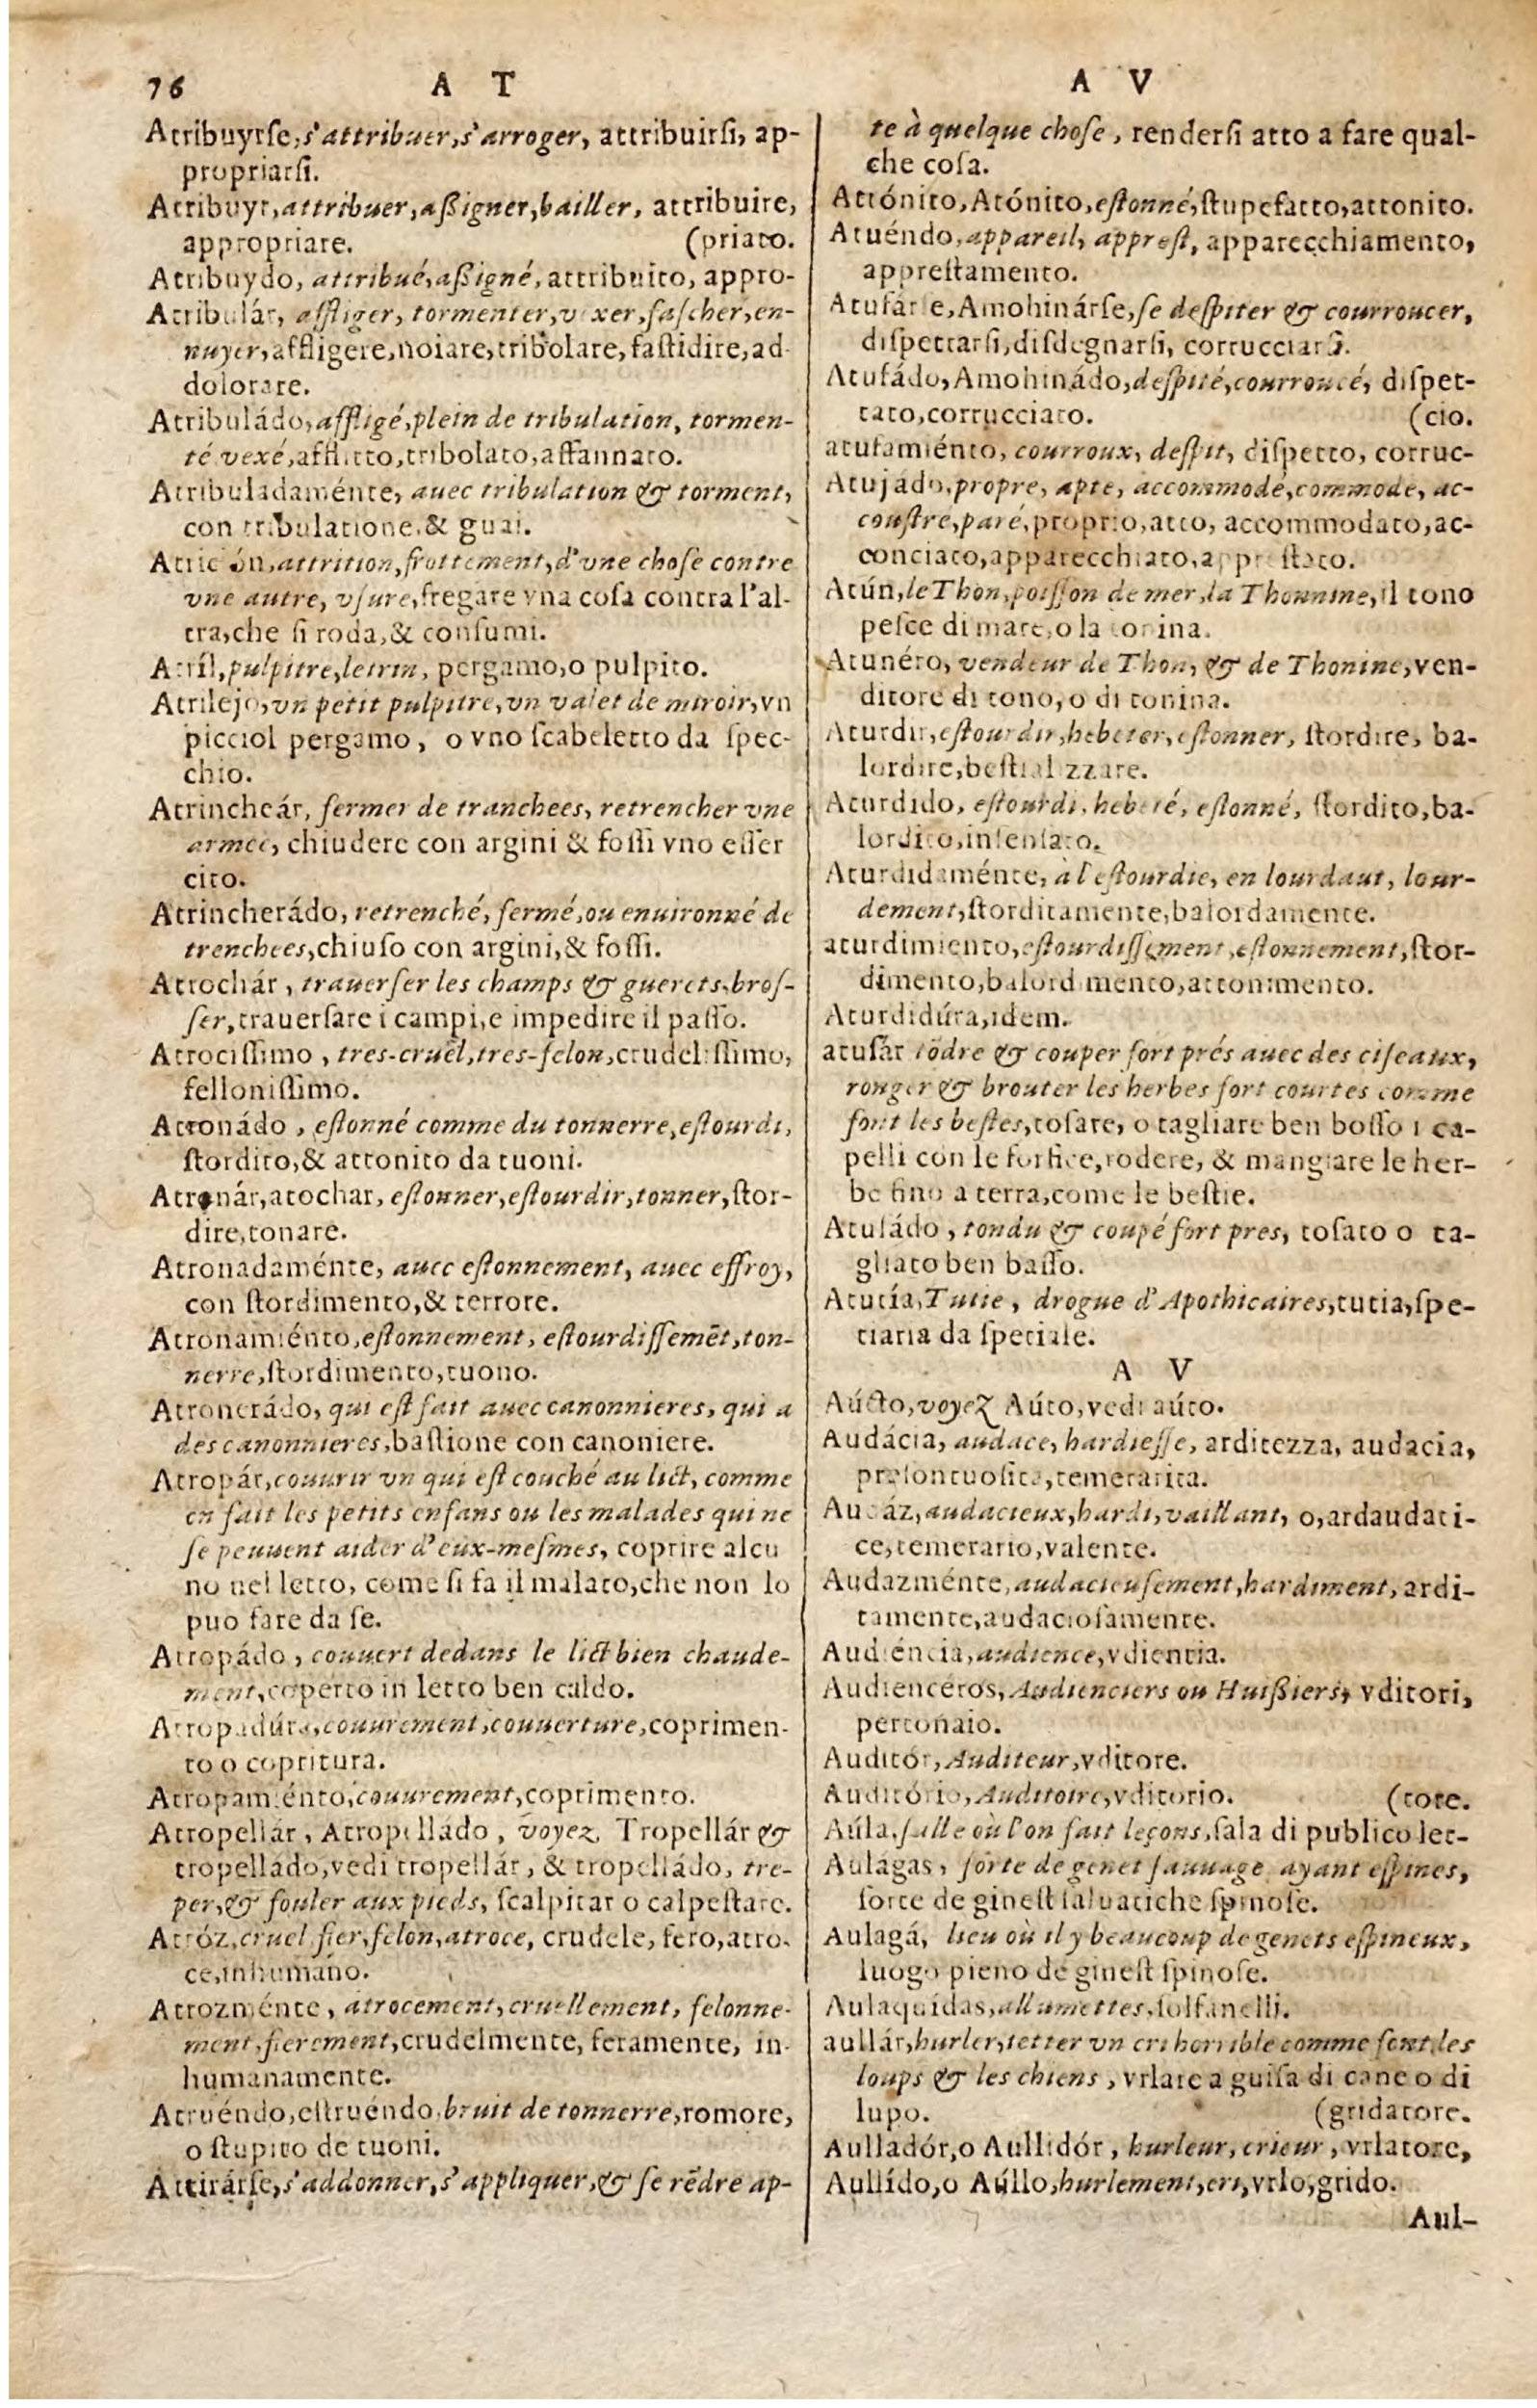 76
A T
Atribuyrse, s'attribuer, s'arroger, attribuirsi, ap-
propriarsi.
Atribuyr, attribuer, aßigner, bailler, attribuire,
appropriare. (priato.
Atribuydo, attribué, aßigné, attribuito, appro-
Atribulár, affliger, tormenter, vexer, fascher, en-
nuyer, affligere, noiare, tribolare, fastidire, ad
dolorare.
Atribuládo, affligé, plein de tribulation, tormen-
té vexé, afflitto, tribolato, affannato.
Atribuladaménte, auec tribulation & torment,
con tribulatione, & guai.
Atrición, attrition, frottement, d'vne chose contre
vne autre, vsure, fregare vna cosa contra l'al-
tra, che si roda, & consumi.
Atríl, pulpitre, letrin, pergamo, o pulpito.
Atrilejo, vn petit pulpitre, vn valet de miroir, vn
picciol pergamo, o vno scabeletto da spec-
chio.
Atrincheár, fermer de tranchees, retrencher vne
armee, chiudere con argini & fossi vno esser
cito.
Atrincherádo, retrenché, fermé, ou enuironné de
trenchees, chiuso con argini, & fossi.
Atrochár, trauerser les champs & guerets, bros-
ser, trauersare i campi, e impedire il passo.
Atrocissimo, tres-cruel, tres-felon, crudelissimo,
fellonissimo.
Atronádo, estonné comme du tonnerre, estourdi,
stordito, & attonito da tuoni.
Atronár, atochar, estonner, estourdir, tonner, stor-
dire, tonare.
Atronadaménte, auec estonnement, auec effroy,
con stordimento, & terrore.
Atronamiénto, estonnement, estourdissemēt, ton-
nerre, stordimento, tuono.
Atronerádo, qui est fait auec canonnieres, qui a
des canonnieres, bastione con canoniere.
Atropár, couurir vn qui est couché au lict, comme
en fait les petits enfans ou les malades qui ne
se peuuent aider d'eux-mesmes, coprire alcu
no nel letto, come si fa il malato, che non lo
puo fare da se.
Atropádo, couuert dedans le lict bien chaude-
ment, coperto in letto ben caldo.
Atropadúra, couurement, couuerture, coprimen-
to o copritura.
Atropamiénto, couurement, coprimento.
Atropellár, Atropelládo, voyez Tropellár &
tropelládo, vedi tropellár, & tropelládo, tre-
per, & fouler aux pieds, scalpitar o calpestare.
Atróz, cruel, fier, felon, atroce, crudele, fero, atro-
ce, inhumano.
Atrozménte, atrocement, cruellement, felonne-
ment, fierement, crudelmente, feramente, in-
humanamente.
Atruéndo, estruéndo, bruit de tonnerre, romore,
o stupito de tuoni.
Attirárse, s'addonner, s'appliquer, & se rēdre ap-
A V
te à quelque chose, rendersi atto a fare qual-
che cosa.
Attónito, Atónito, estonné, stupefatto, attonito.
Atuéndo, appareil, apprest, apparecchiamento,
apprestamento.
Atufárse, Amohinárse, se despiter & courroucer,
dispettarsi, disdegnarsi, corrucciarsi.
Atufádo, Amohinádo, despité, courroucé, dispet-
tato, corrucciato. (cio.
atufamiénto, courroux, despit, dispetto, corruc-
Atujádo, propre, apte, accommodé, commode, ac-
coustré, paré, proprio, atto, accommodato, ac-
conciato, apparecchiato, apprestato.
Atún, le Thon, poisson de mer, la Thonnine, il tono
pesce di mare, o la tonina.
Atunéro, vendeur de Thon, & de Thonine, ven-
ditore di tono, o di tonina.
Aturdir, estourdir, hebeter, estonner, stordire, ba-
lordire, bestializzare.
Aturdido, estourdi, hebeté, estonné, stordito, ba-
lordito, insensato.
Aturdidaménte, à l'estourdie, en lourdaut, lour-
dement, storditamente, balordamente.
aturdimiento, estourdissement, estonnement, stor-
dimento, balordimento, attonimento.
Aturdidúra, idem.
atusár tōdre & couper fort prés auec des ciseaux,
ronger & brouter les herbes fort courtes comme
font les bestes, tosare, o tagliare ben bosso i ca-
pelli con le forfice, rodere, & mangiare le her-
be fino a terra, come le bestie.
Atusádo, tondu & coupé fort pres, tosato o ta-
gliato ben basso.
Atutía, Tutie, drogue d'Apothicaires, tutia, spe-
tiaria da speciale.
A V
Aúcto, voyez Aúto, vedi aúto.
Audácia, audace, hardiesse, arditezza, audacia,
presontuosita, temerarita.
Audáz, audacieux, hardi, vaillant, o, ardaudati-
ce, temerario, valente.
Audazménte, audacieusement, hardiment, ardi-
tamente, audaciosamente.
Audiéncia, audience, vdientia.
Audiencéros, Audienciers ou Huißiers, vditori,
portonaio.
Auditór, Auditeur, vditore.
Auditório, Auditoire, vditorio. (tore.
Aúla, salle où l'on fait leçons, sala di publico let-
Aulagas, sorte de genet sauuage ayant espines,
sorte de ginest saluatiche spinose.
Aulagá, lieu où il y beaucoup de genets espineux,
luogo pieno de ginest spinose.
Aulaquídas, allumettes, solfanelli.
aullár, hurler, ietter vn cri horrible comme font les
loups & les chiens, vrlare a guisa di cane o di
lupo. (gridatore.
Aulladór, o Aullidór, hurleur, crieur, vrlatore,
Aullído, o Aúllo, hurlement, cri, vrlo, grido.
Aul-